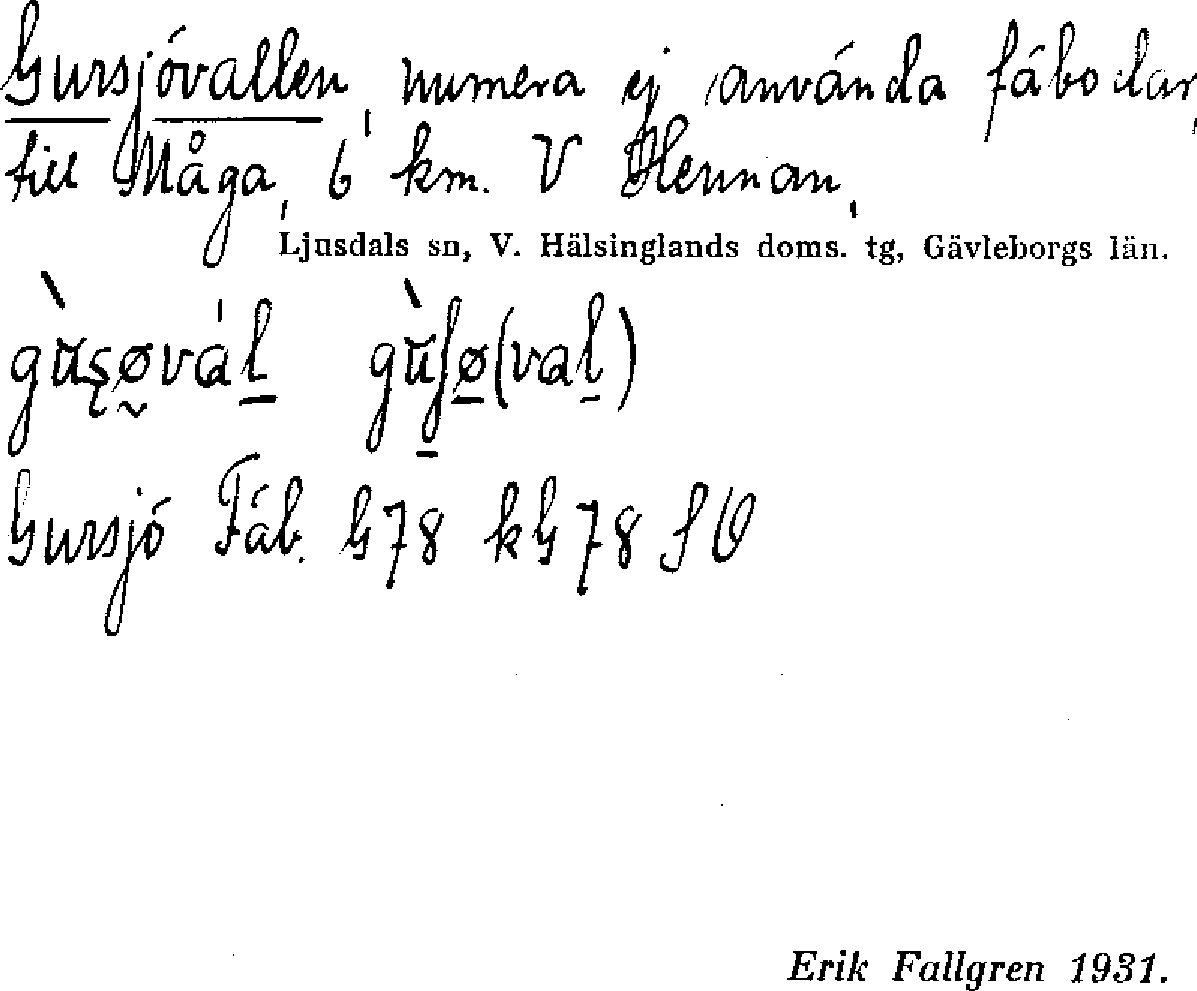 Gursjövallen, numera ej använda fäbodar,
till Måga, 6 km. V Hennan,
Ljusdals sn, V. Hälsinglands doms. tg, Gävleborgs län.
Gursjö Fäb. G78 kG78 SO
Erik Fallgren 1931.